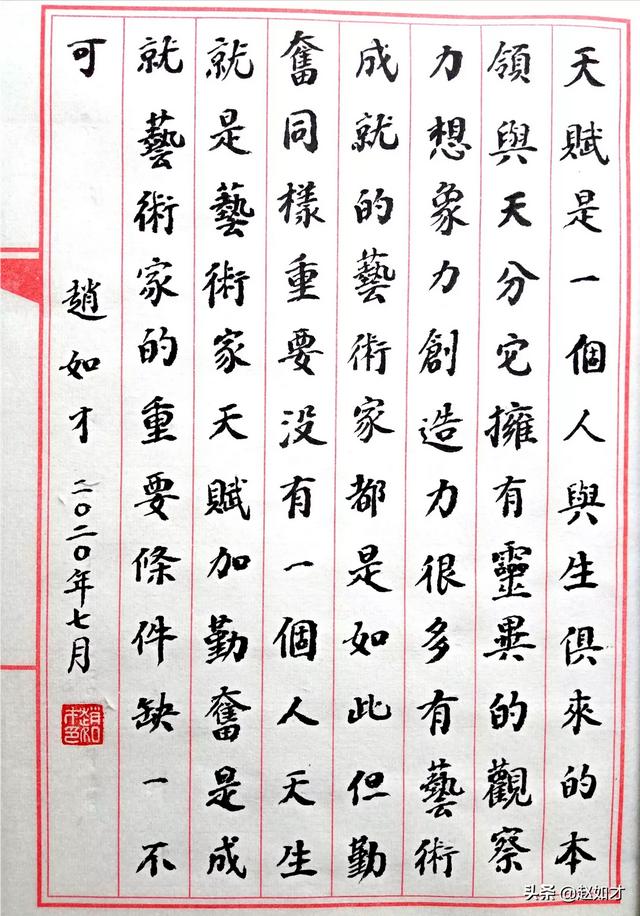 天賦是一個人與生俱來的本
領與天分它擁有靈異的觀察
力想象力創造力很多有藝術
成就的藝術家都是如此但勤
奮同樣重要没有一個人天生
就是藝術家天賦加勤奮是成
就藝術家的重要條件缺一不
可
趙如才二〇二〇年七月
頭条 @赵如才